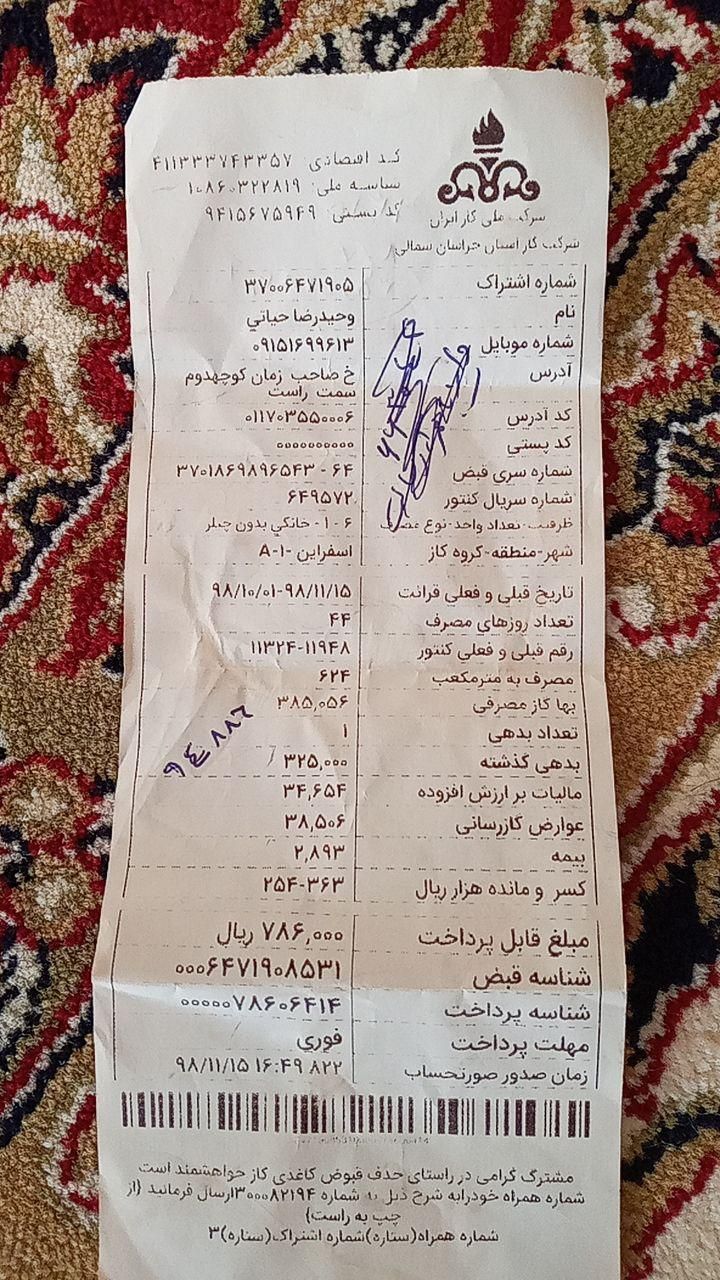 کد اقتصادی: ۴۱۱۳۳۳۷۴۳۳۵۷
شناسه ملی: ۱۰۸۶۰۳۲۲۸۱۹
کد پستی: ۹۴۱۵۶۷۵۹۴۹
شرکت ملی گاز ایران
شرکت گاز استان خراسان شمالی
شماره اشتراک ۳۷۰۰۶۴۷۱۹۰۵
نام وحیدرضا حیاتي
شماره موبایل ۰۹۱۵۱۶۹۹۶۱۳
آدرس خ صاحب زمان کوچهدوم
سمت راست
کد آدرس ۰۱۱۷۰۳۵۵۰۰۰۶
کد پستی ۰۰۰۰۰۰۰۰۰۰
شماره سری قبض ۶۴ - ۳۷۰۱۸۶۹۸۹۶۵۴۳
شماره سریال کنتور ۶۴۹۵۷۲
ظرفیت-تعداد واحد-نوع مصرف ۶ -۱ - خانگي بدون چیلر
شهر-منطقه-گروه گاز اسفراین -۱-A
تاریخ قبلی و فعلی قرائت ۹۸/۱۰/۰۱-۹۸/۱۱/۱۵
تعداد روزهای مصرف ۴۴
رقم قبلی و فعلی کنتور ۱۱۳۲۴-۱۱۹۴۸
مصرف به مترمکعب ۶۲۴
بها گاز مصرفی ۳۸۵,۰۵۶
تعداد بدهی ۱
۹۴۰۸۸۶
بدهی گذشته ۳۲۵,۰۰۰
مالیات بر ارزش افزوده ۳۴,۶۵۴
عوارض گازرسانی ۳۸,۵۰۶
بیمه ۲,۸۹۳
کسر و مانده هزار ریال ۲۵۴-۳۶۳
مبلغ قابل پرداخت ۷۸۶,۰۰۰ ریال
شناسه قبض ۰۰۰۶۴۷۱۹۰۸۵۳۱
شناسه پرداخت ۰۰۰۰۰۷۸۶۰۶۴۱۴
مهلت پرداخت فوري
زمان صدور صورتحساب ۹۸/۱۱/۱۵ ۱۶:۴۹ ۸۲۲
مشترک گرامی در راستای حذف قبوض کاغذی گاز خواهشمند است
شماره همراه خودرابه شرح ذیل به شماره ۳۰۰۰۸۲۱۹۴ارسال فرمائید {از
چپ به راست}
شماره همراه(ستاره)شماره اشتراک(ستاره)۳